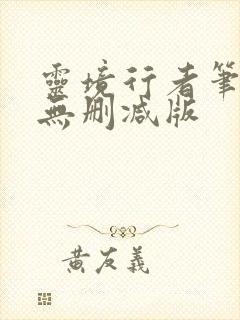 靈境行者筆
無刪減版
黃友義